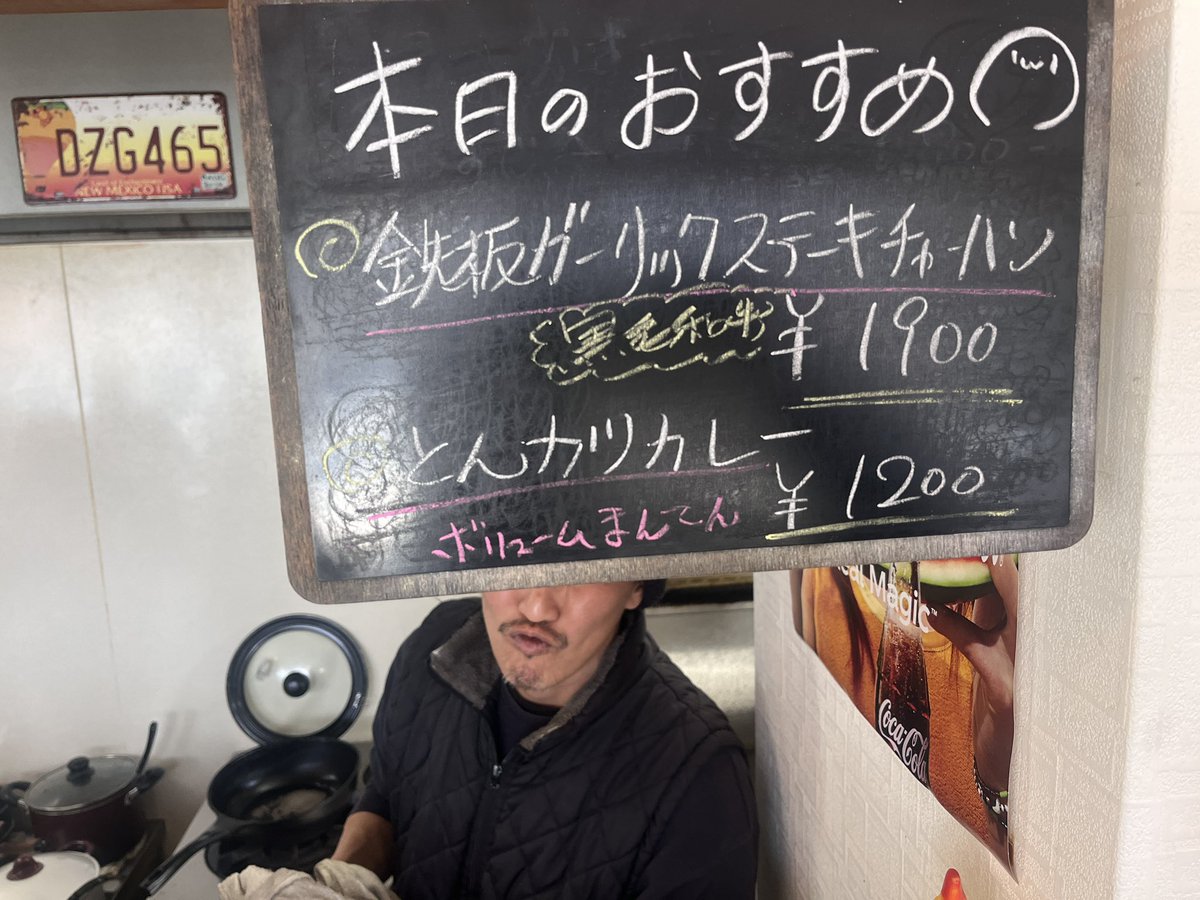 本日のおすすめ
鉄板ガーリックステーキチャーハン
黒毛和牛
¥1900
とんカツカレー
¥1200
ボリュームまんてん
DZG465
NEW MEXICO USA
Real Magic™
Coca-Cola